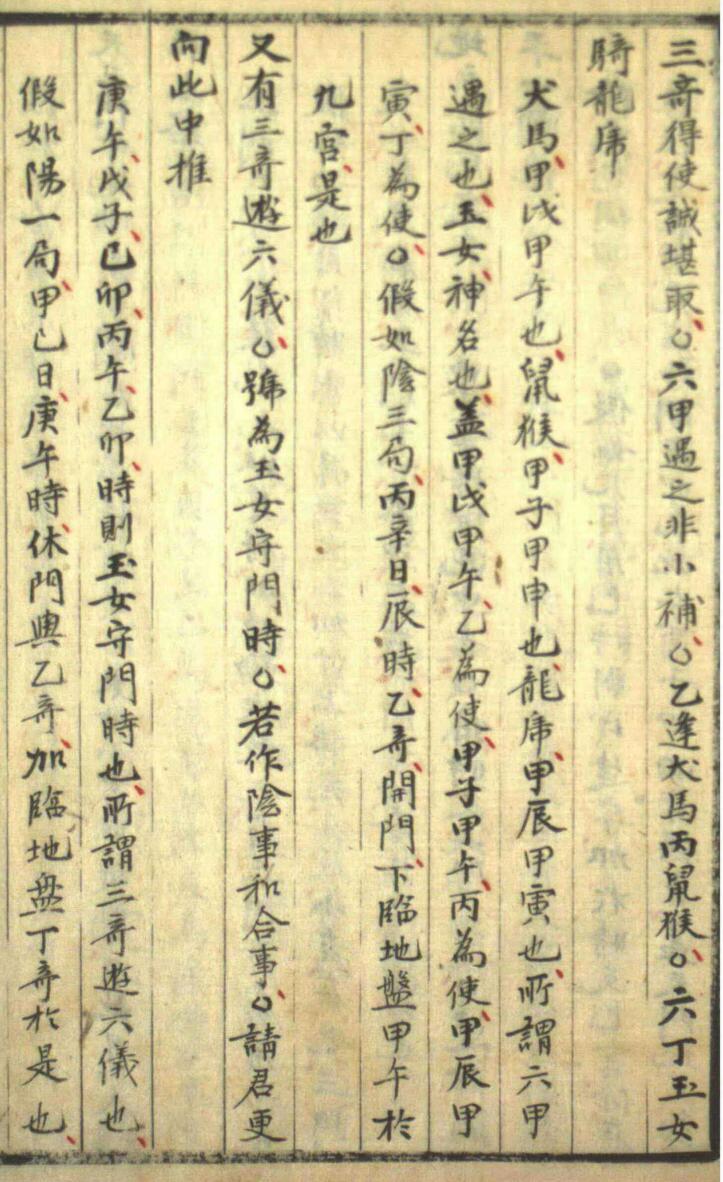 三奇得使誠堪取〇六甲遇之非小補〇乙逢犬馬丙鼠猴〇六丁玉女
騎龍席
犬馬、甲戌甲午也、鼠猴、甲子甲申也、龍席、甲辰甲寅也、所謂六甲
遇之也、玉女、神名也、盖甲戌甲午、乙為使、甲子甲午、丙為使、甲辰甲
寅、丁為使、〇假如陰三局、丙辛日、辰時、乙奇、開門、下臨地盤甲午於
九宮、是也
又有三奇遊六儀〇號為玉女守門時〇若作陰事和合事〇請君更
向此中推
庚午、戊子、己卯、丙午、乙卯、時則玉女守門時也、所謂三奇遊六儀也、
假如陽一局、甲己日、庚午時、休門與乙奇、加臨地盤丁奇於是也、